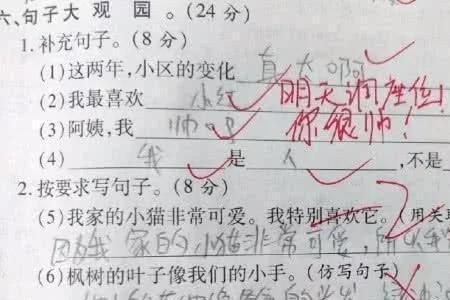 六、句子大观园。(24分)
1.补充句子。(8分)
(1)这两年,小区的变化 真大啊
(2)我最喜欢 小红 明天调座位!
(3)阿姨,我 帅吗 你很帅!
(4) 我 是 人 ,不是
2.按要求写句子。(8分)
(5)我家的小猫非常可爱。我特别喜欢它。(用关
因为我家的小猫非常可爱,所以我
(6)枫树的叶子像我们的小手。(仿写句子)